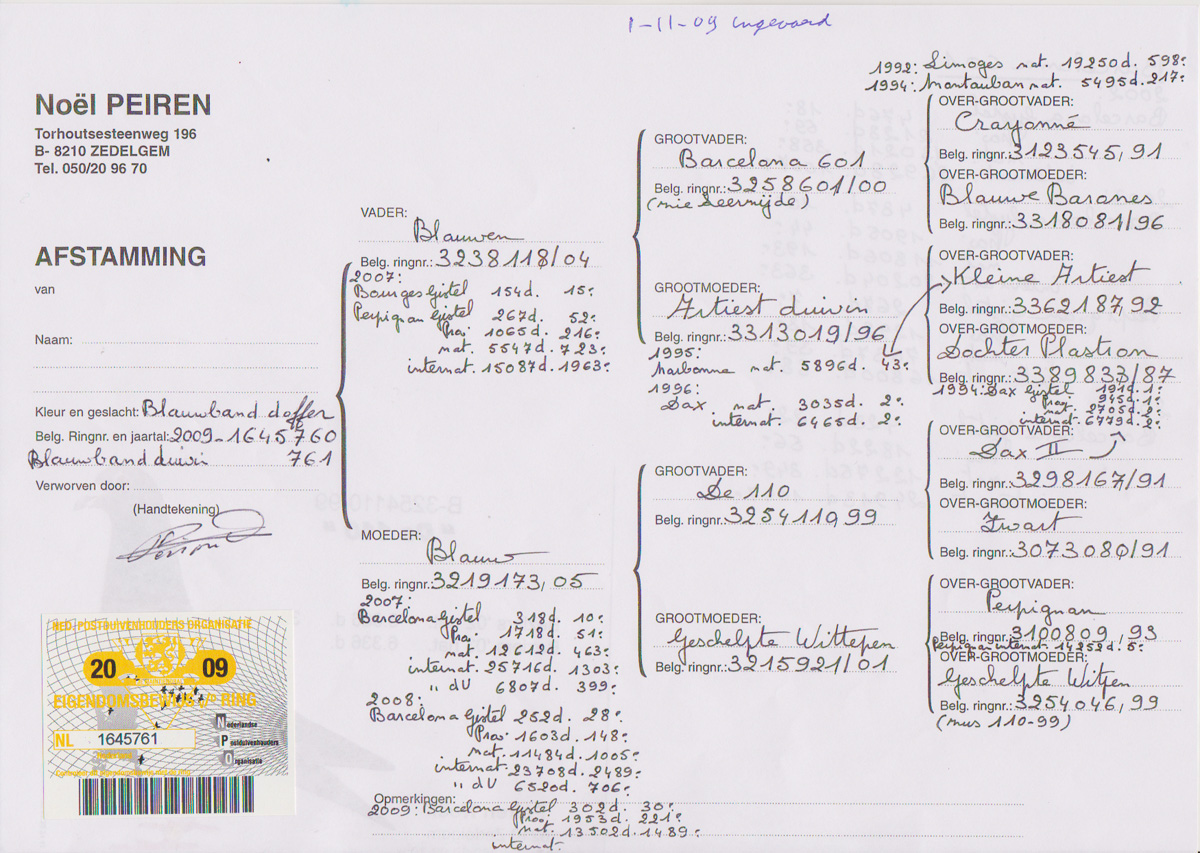 1-11-09 ingevoerd
Noël PEIREN
Torhoutsesteenweg 196
B- 8210 ZEDELGEM
Tel. 050/20 96 70
AFSTAMMING
van
Naam:
Kleur en geslacht: Blauwband doffer
Belg. Ringnr. en jaartal: 2009-1645760
Blauwband duivin 761
Verworven door:
(Handtekening)
NED. POSTDUIVENHOUDERS ORGANISATIE
20 09
EIGENDOMSBEWIJS v/d RING
NL 1645761
Nederlandse
Postduivenhouders
Organisatie
VADER:
Blauwen
Belg. ringnr.: 3238118/04
2007:
Bourges Gistel 154d. 15e
Perpignan Gistel 267d. 52e
Prov. 1065d. 216e
nat. 5547d. 723e
internat. 15087d. 1963e
MOEDER:
Blauw
Belg. ringnr.: 3219173, 05
2007:
Barcelona Gistel 318d. 10e
Prov. 1718d. 51e
nat. 12612d. 463e
internat. 25716d. 1303e
" dU 6807d. 399e
2008:
Barcelona Gistel 252d. 28e
Prov. 1603d. 148e
nat. 11484d. 1005e
internat. 23708d. 2489e
" dU 6520d. 706e
Opmerkingen:
2009: Barcelona Gistel 302d. 30e
Prov. 1953d. 221e
nat. 13502d. 1489e
internat.
GROOTVADER:
Barcelona 601
Belg. ringnr.: 3258601/00
(nie Leermijde)
GROOTMOEDER:
Artiest duivin
Belg. ringnr.: 3313019/96
1995:
Narbonne nat. 5896d. 43e
1996:
Dax nat. 3035d. 2e
internat. 6465d. 2e
GROOTVADER:
De 110
Belg. ringnr.: 3254110, 99
GROOTMOEDER:
Geschelpte Wittepen
Belg. ringnr.: 3215921/01
1992: Limoges nat. 19250d. 598e
1994: Montauban nat. 5495d. 217e
OVER-GROOTVADER:
Crayonné
Belg. ringnr.: 3123545, 91
OVER-GROOTMOEDER:
Blauwe Barones
Belg. ringnr.: 3318081/96
OVER-GROOTVADER:
Kleine Artiest
Belg. ringnr.: 3362187, 92
OVER-GROOTMOEDER:
Dochter Plastron
Belg. ringnr.: 3389833/87
1994: Dax Gistel 191d. 1e
Prov. 945d. 1e
nat. 2705d. 2e
internat. 6779d. 2e
OVER-GROOTVADER:
Dax II
Belg. ringnr.: 3298167/91
OVER-GROOTMOEDER:
Zwart
Belg. ringnr.: 3073080/91
OVER-GROOTVADER:
Perpignan
Belg. ringnr.: 3100809, 93
Perpignan internat. 14252d. 5e
OVER-GROOTMOEDER:
Geschelpte Witpen
Belg. ringnr.: 3254046, 99
(zus 110-99)